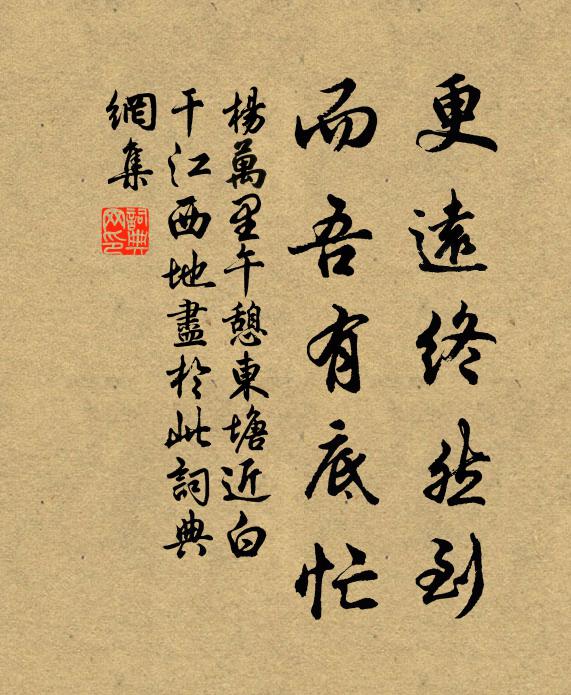 更遠終然到
而吾有底忙
楊萬里午憩東塘近白
干江西地盡於此詞典
網集
詞典
网印